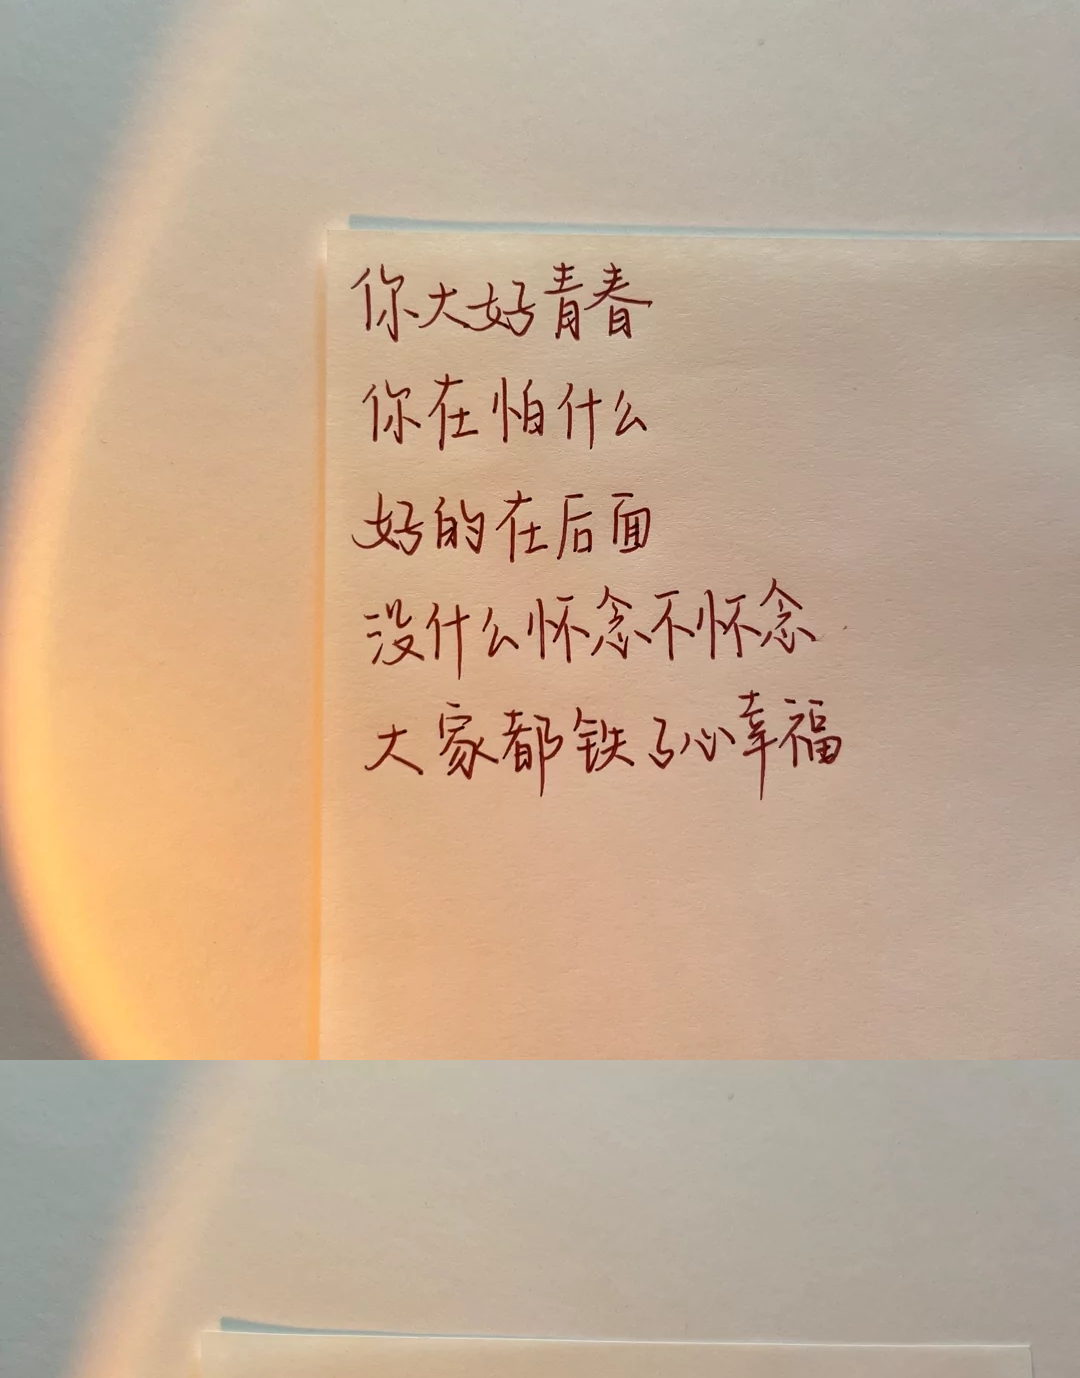 你大好青春
你在怕什么
好的在后面
没什么怀念不怀念
大家都铁了心幸福